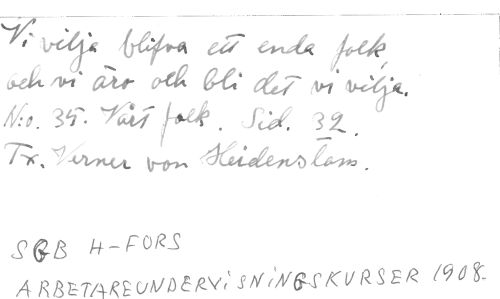 Vi vilja blifva ett enda folk,
och vi äro och bli det vi vilja.
N:o. 35. Vårt folk. Sid. 32.
Tx. Verner von Heidenstam.
SGB H-FORS
ARBETAREUNDERVISNINGSKURSER 1908.